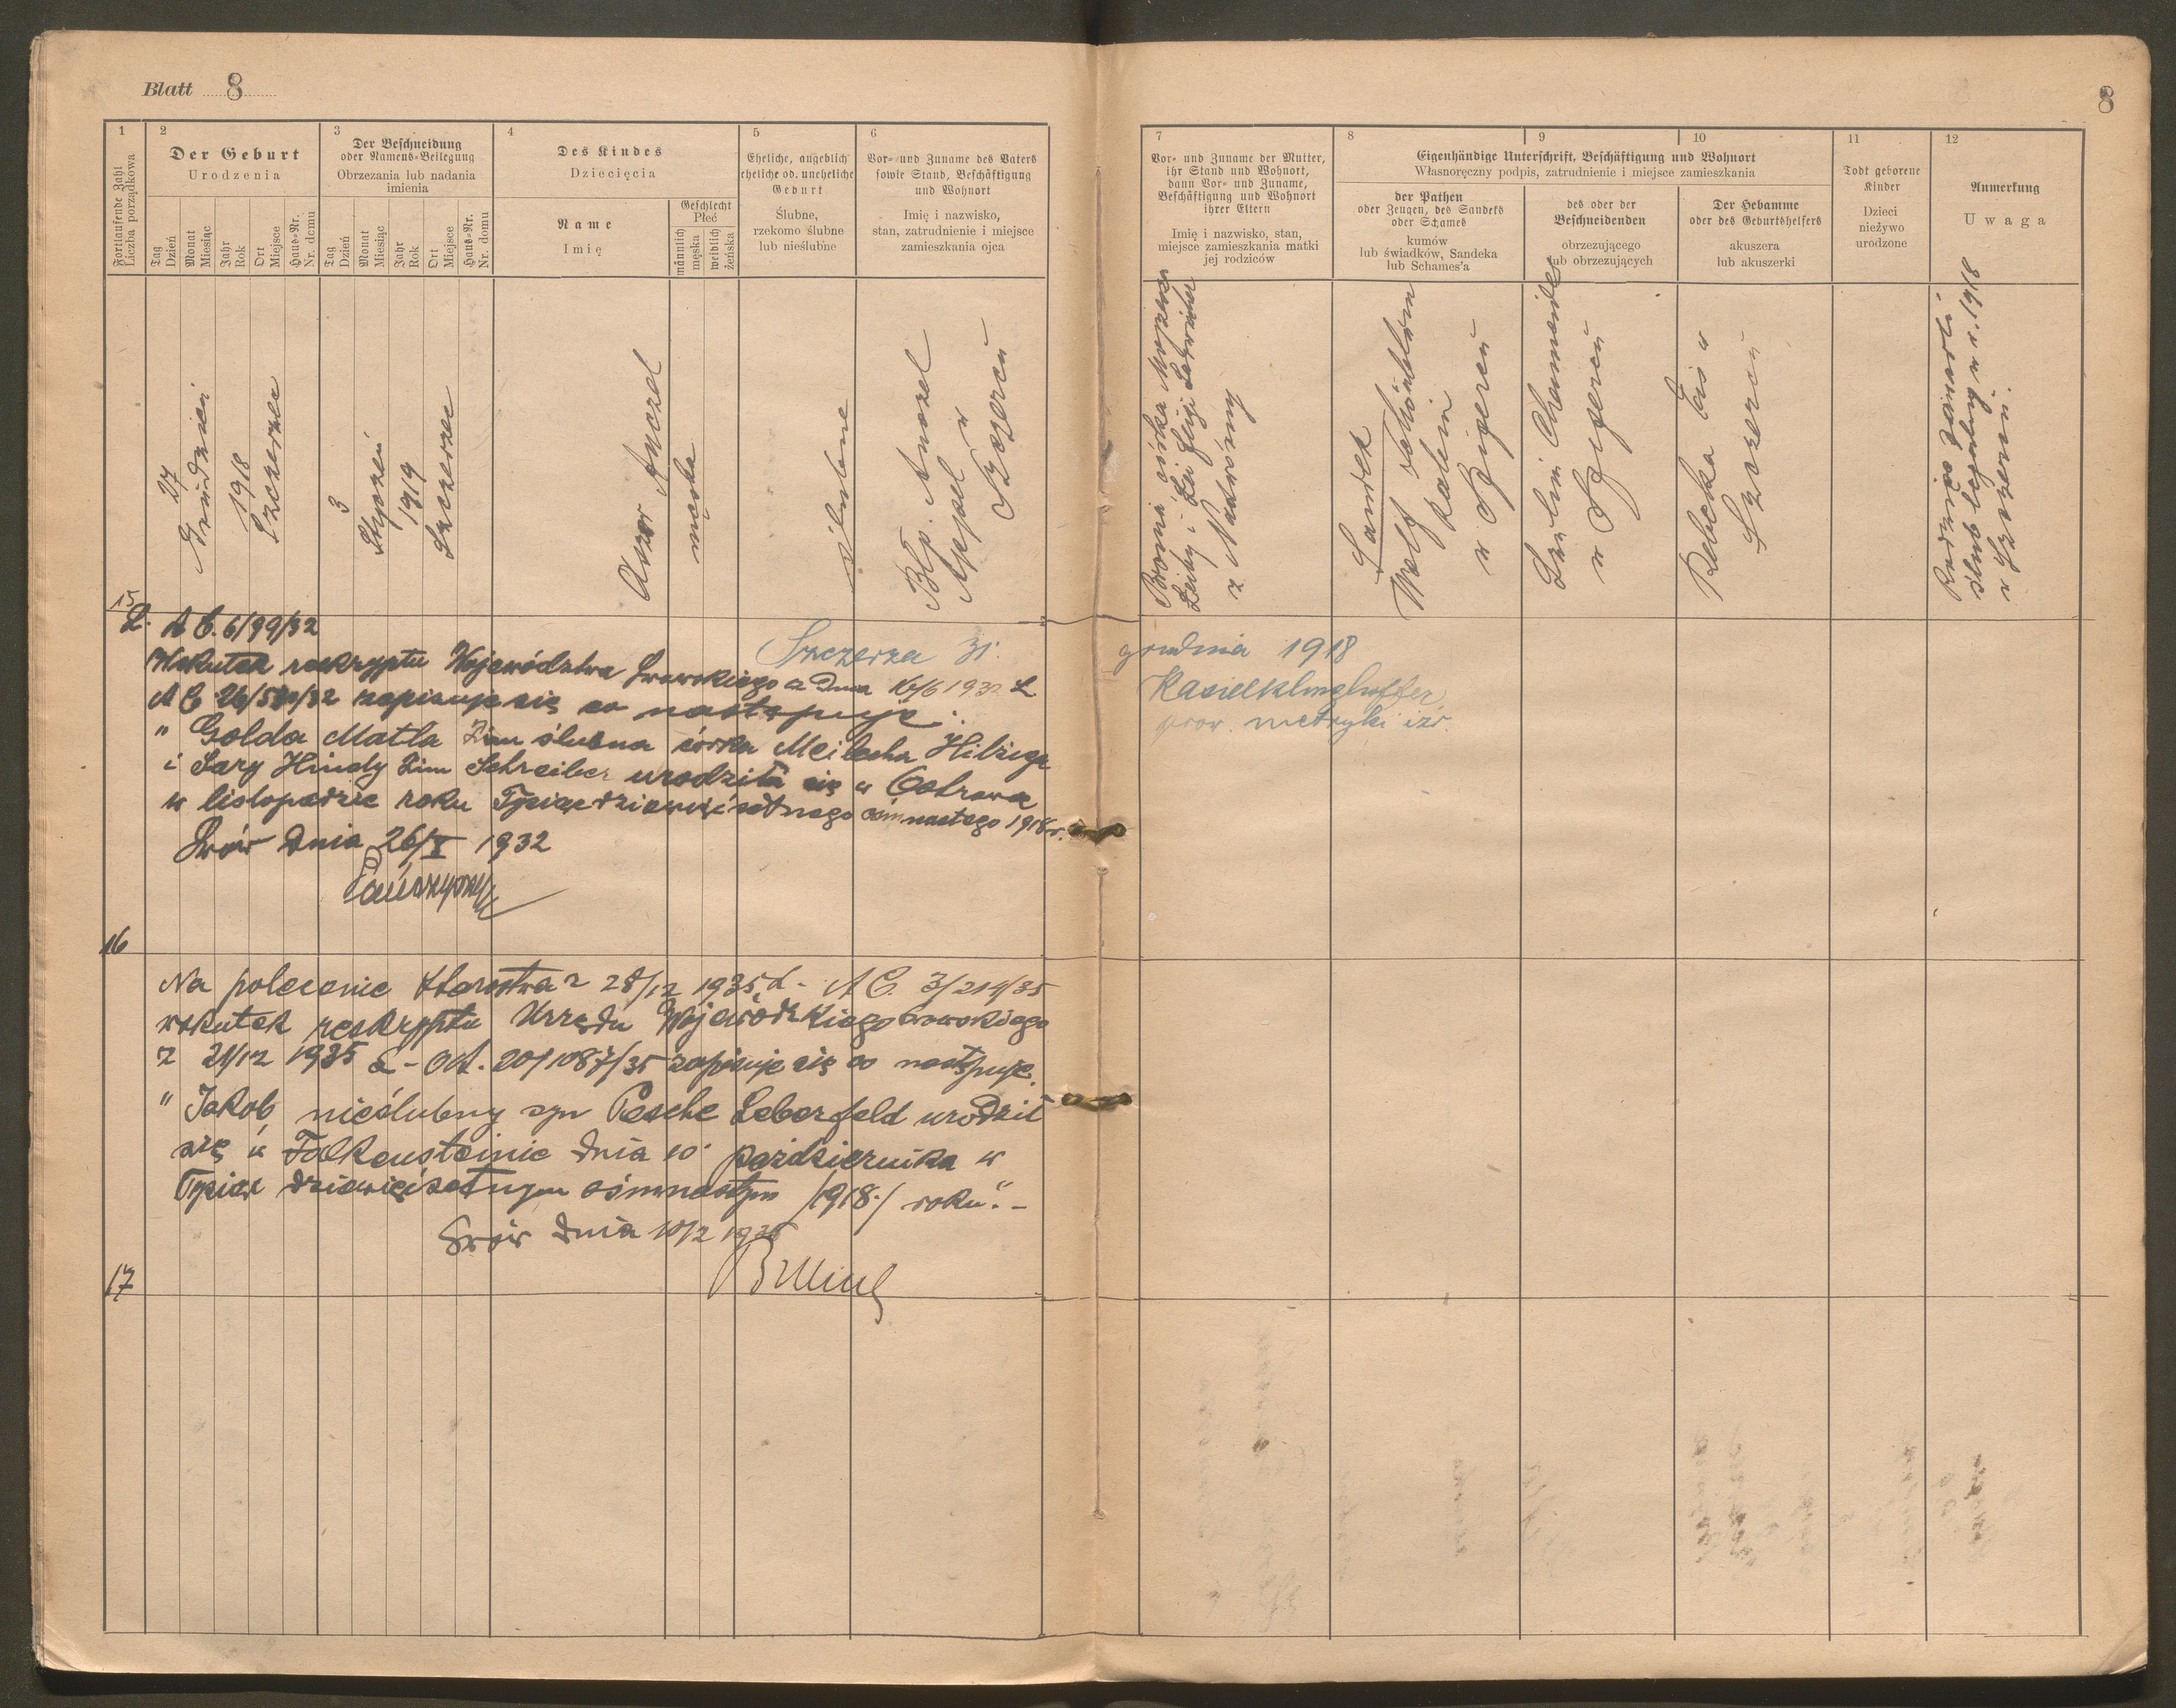 Blatt 8
8
1
Fortlaufende Zahl
Liczba porządkowa
2
Der Geburt
Urodzenia
Tag
Dzień
Monat
Miesiąc
Jahr
Rok
Ort
Miejsce
Haus-Nr.
Nr. domu
3
Der Beschneidung
oder Namens-Beilegung
Obrzezania lub nadania
imienia
Tag
Dzień
Monat
Miesiąc
Jahr
Rok
Ort
Miejsce
Haus-Nr.
Nr. domu
4
Des Kindes
Dziecięcia
Name
Imię
Geschlecht
Płeć
männlich
męska
weiblich
żeńska
5
Eheliche, angeblich
eheliche od. uneheliche
Geburt
Ślubne,
rzekomo ślubne
lub nieślubne
6
Vor- und Zuname des Vaters
sowie Stand, Beschäftigung
und Wohnort
Imię i nazwisko,
stan, zatrudnienie i miejsce
zamieszkania ojca
7
Vor- und Zuname der Mutter,
ihr Stand und Wohnort,
dann Vor- und Zuname,
Beschäftigung und Wohnort
ihrer Eltern
Imię i nazwisko, stan,
miejsce zamieszkania matki
jej rodziców
Eigenhändige Unterschrift, Beschäftigung und Wohnort
Własnoręczny podpis, zatrudnienie i miejsce zamieszkania
8
der Pathen
oder Zeugen, des Sandeks
oder Schames
kumów
lub świadków, Sandeka
lub Schames'a
9
des oder der
Beschneidenden
obrzezującego
lub obrzezujących
10
Der Hebamme
oder des Geburtshelfers
akuszera
lub akuszerki
11
Todt geborene
Kinder
Dzieci
nieżywo
urodzone
12
Anmerkung
Uwaga
15
27
Grudzień
1918
Szczerzec
3
Styczeń
1919
Szczerzec
Anczel
męska
ślubne
Anczel
Appel w
Szczercu
córka
Leiby i
z Nadwórny
Sandek
Wolf
rabin
w Szczercu
w Szczercu
Rebeka Eis w
Szczercu
ślub w r. 1918
w Szczercu
L. A C. 6/99/32
Wskutek reskryptu Województwa Lwowskiego z dnia 1932 L
A C 26/ /32 zapisuje się co następuje:
" Golda Matla Zim ślubna córka Meilecha Hibiga
i Sary Hindy Zim Schreiber urodziła się w Ostrowa
w listopadzie roku Tysiąc dziewięćsetnego ośmnastego 1918 r.
Lwów dnia 26/X 1932
Szczerza 31.
grudnia 1918
Kasiel Klinghoffer
prow. metryki izr.
16
Na polecenie Starostwa z 28/12 1935 L. A C. 3/214/35
wskutek reskryptu Urzędu Wojewódzkiego Lwowskiego
z 21/12 1935 L - OA. 20/1087/35 zapisuje się co następuje.
" Jakob nieślubny syn Pesche Leberfeld urodził
się w Falkensteinie dnia 10 października w
Tysiąc dziewięćsetnym ośmnastym /1918/ roku". -
Lwów dnia
17